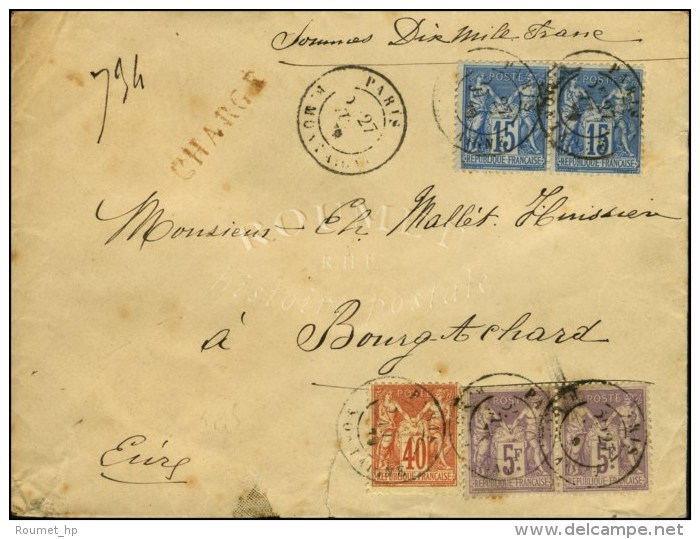 Sommes Dix Mile Franc
794
CHARGÉ
PARIS
R. MONTAIGNE
27
POSTE
15
REPUBLIQUE FRANÇAISE
POSTE
15
REPUBLIQUE FRANÇAISE
Monsieur Ch. Mallèt. Huissier
ROUMET
histoire postale
à Bourg Achard
Eure
40
REPUBLIQUE FRANÇAISE
POSTE
5F
REPUBLIQUE FRANÇAISE
POSTE
5F
REPUBLIQUE FRANÇAISE
Roumet_hp
delcampe.net